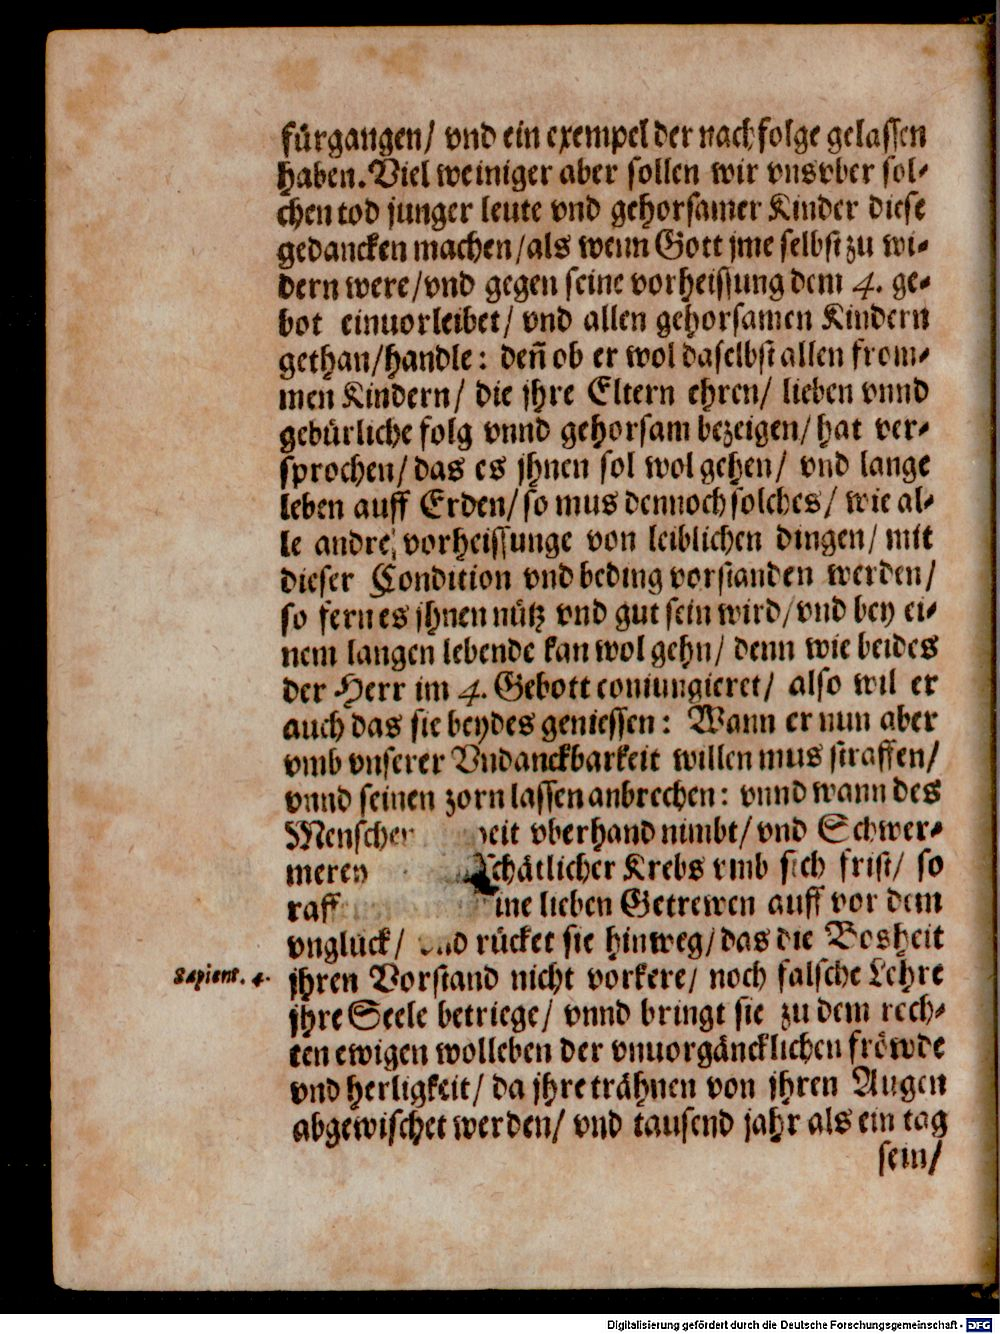 fürgangen/ vnd ein exempel der nachfolge gelassen
haben. Viel weiniger aber sollen wir vns vber sol-
chen tod junger leute vnd gehorsamer Kinder diese
gedancken machen/ als wenn Gott jme selbst zu wi-
dern were/ vnd gegen seine vorheissung dem 4. ge-
bot einuorleibet/ vnd allen gehorsamen Kindern
gethan/ handle: den̄ ob er wol daselbst allen from-
men Kindern/ die jhre Eltern ehren/ lieben vnnd
gebürliche folg vnnd gehorsam bezeigen/ hat ver-
sprochen/ das es jhnen sol wol gehen/ vnd lange
leben auff Erden/ so mus dennoch solches/ wie al-
le andre vorheissunge von leiblichen dingen/ mit
dieser Condition vnd beding vorstanden werden/
so fern es jhnen nütz vnd gut sein wird/ vnd bey ei-
nem langen lebende kan wol gehn/ denn wie beides
der Herr im 4. Gebott coniungieret/ also wil er
auch das sie beydes geniessen: Wann er nun aber
vmb vnserer Vndanckbarkeit willen mus straffen/
vnnd seinen zorn lassen anbrechen: vnnd wann des
Menschen heit vberhand nimbt/ vnd Schwer-
merey schätlicher Krebs vmb sich frist/ so
raff ine lieben Getrewen auff vor dem
vnglück/ vnd rücket sie hinweg/ das die Bosheit
Sapient. 4.
jhren Vorstand nicht vorkere/ noch falsche Lehre
jhre Seele betriege/ vnnd bringt sie zu dem rech-
ten ewigen wolleben der vnuorgäncklichen fröwde
vnd herligkeit/ da jhre trähnen von jhren Augen
abgewischet werden/ vnd tausend jahr als ein tag
sein/
Digitalisierung gefördert durch die Deutsche Forschungsgemeinschaft - DFG